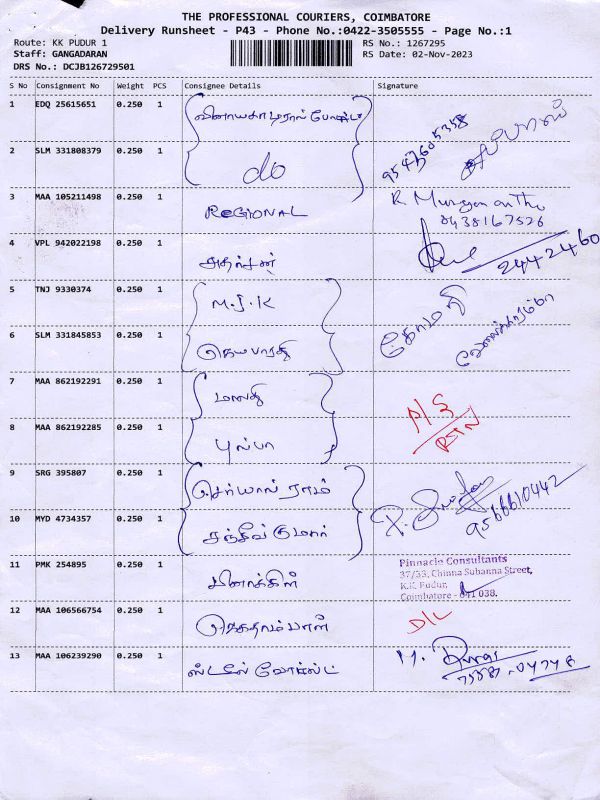 THE PROFESSIONAL COURIERS, COIMBATORE
Delivery Runsheet - P43 - Phone No.:0422-3505555 - Page No.:1
Route: KK PUDUR 1
RS No.: 1267295
Staff: GANGADARAN
RS Date: 02-Nov-2023
DRS No.: DCJB126729501
S No Consignment No Weight PCS Consignee Details Signature
1 EDQ 25615651 0.250 1
2 SLM 331808379 0.250 1 do
3 MAA 105211498 0.250 1 REGIONAL
4 VPL 942022198 0.250 1 2442460
5 TNJ 9330374 0.250 1 M.J.K கோமதி
6 SLM 331845853 0.250 1 ஜெயபாரதி
7 MAA 862192291 0.250 1 மாலதி P/S
8 MAA 862192285 0.250 1 புஷ்பா RTN
9 SRG 395807 0.250 1
10 MYD 4734357 0.250 1 சஞ்சீவ் குமார் 9566610442
11 PMK 254895 0.250 1 பினாக்கிள் Pinnacle Consultants
37/33, Chinna Subanna Street,
K.K. Pudur,
Coimbatore - 641 038.
12 MAA 106566754 0.250 1 D/L
13 MAA 106239290 0.250 1